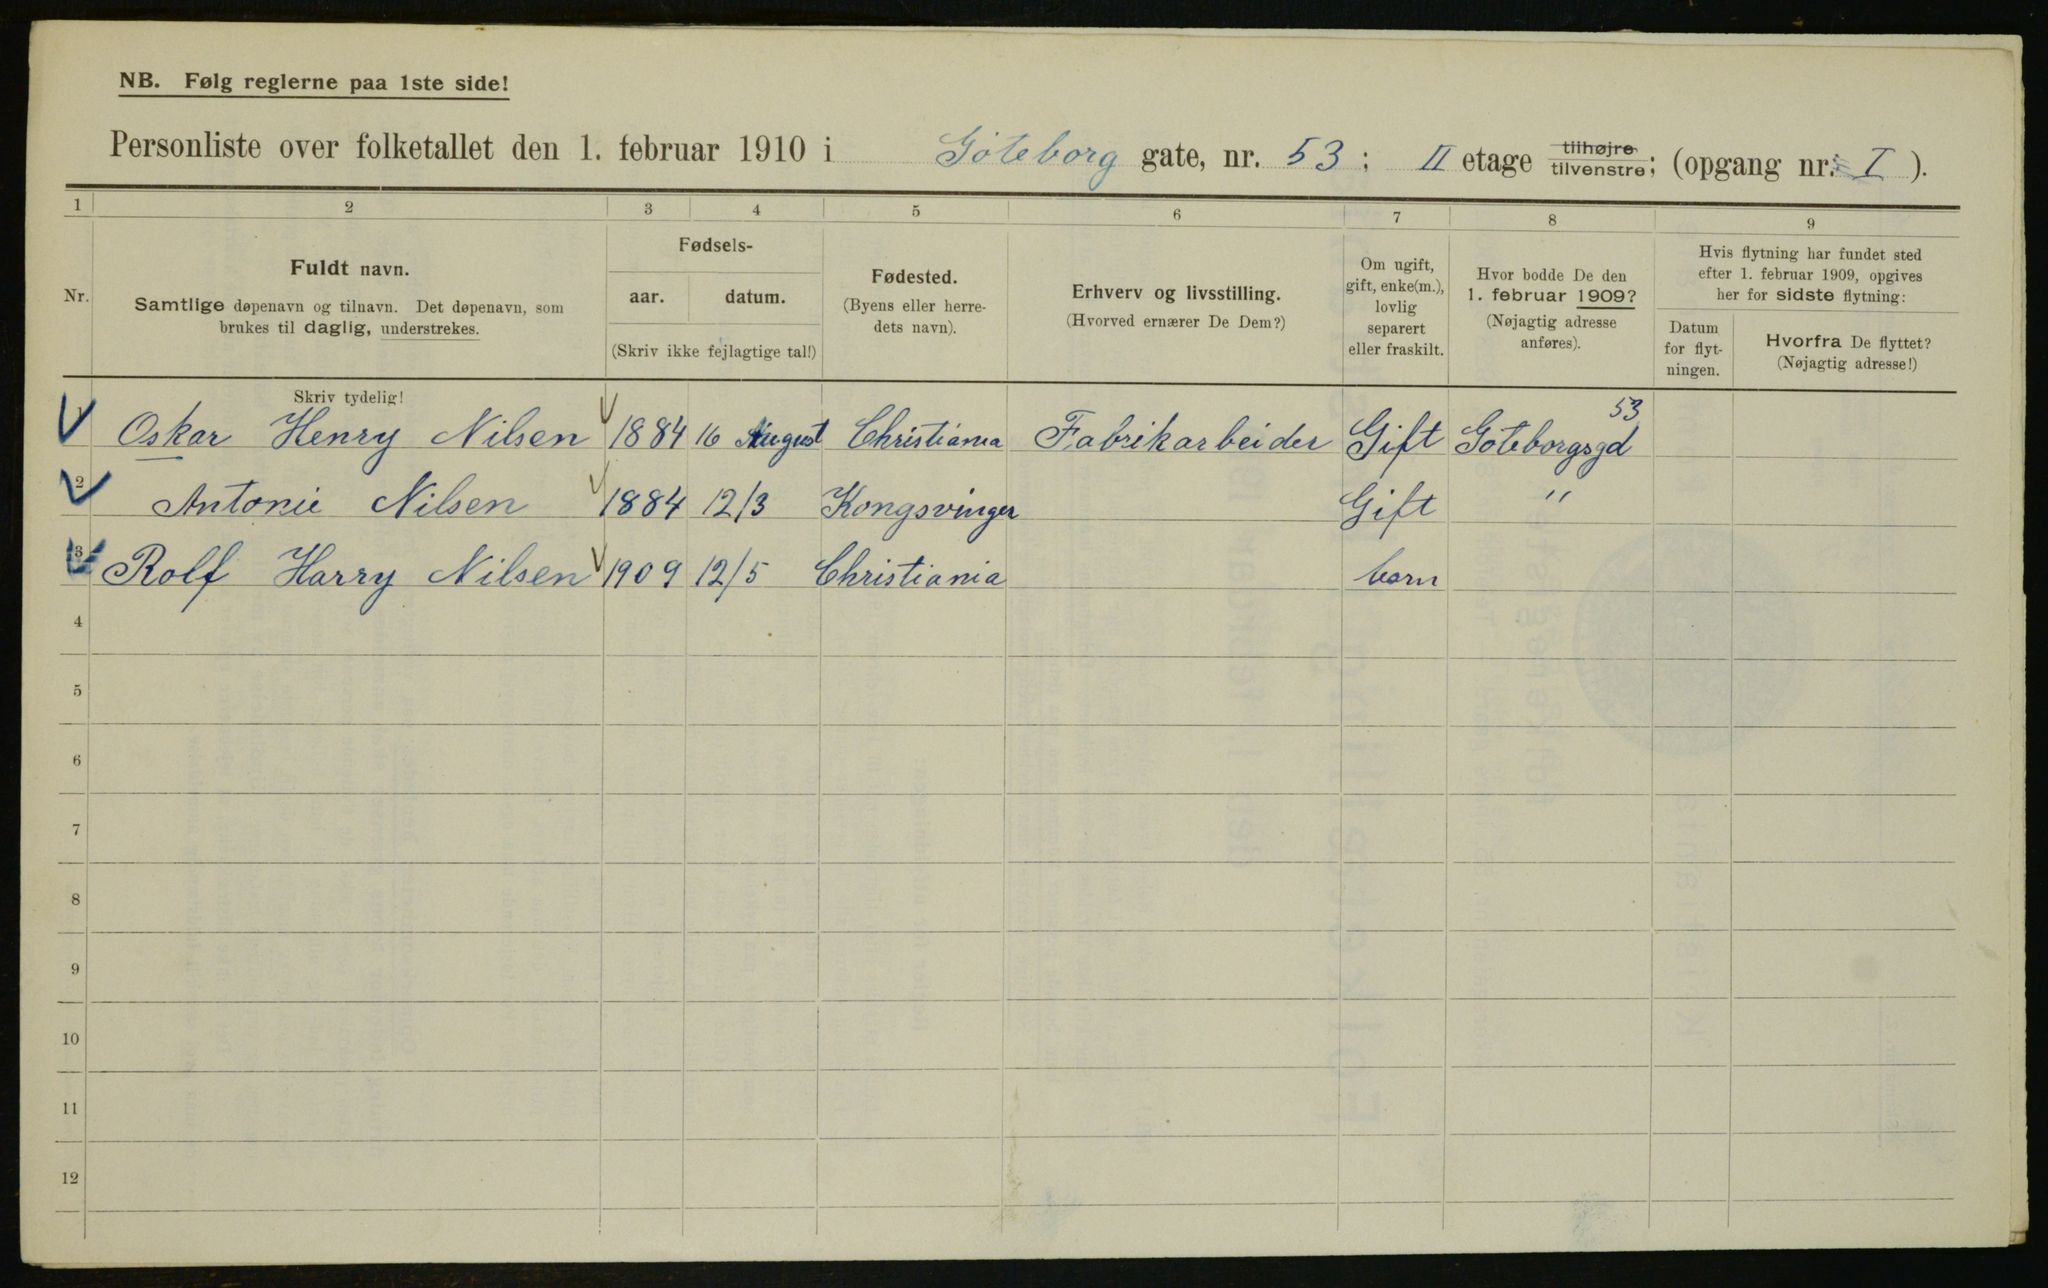 NB. Følg reglerne paa 1ste side!
Personliste over folketallet den 1. februar 1910 i Göteborg gate, nr. 53; II etage tilhøjre tilvenstre; (opgang nr. I ).
1 2 3 4 5 6 7 8 9
Nr.
Fuldt navn.
Samtlige døpenavn og tilnavn. Det døpenavn, som
brukes til daglig, understrekes.
Skriv tydelig!
Fødsels-
aar. datum.
(Skriv ikke fejlagtige tal!)
Fødested.
(Byens eller herre-
dets navn).
Erhverv og livsstilling.
(Hvorved ernærer De Dem?)
Om ugift,
gift, enke(m.),
lovlig
separert
eller fraskilt.
Hvor bodde De den
1. februar 1909?
(Nøjagtig adresse
anføres).
Hvis flytning har fundet sted
efter 1. februar 1909, opgives
her for sidste flytning:
Datum
for flyt-
ningen.
Hvorfra De flyttet?
(Nøjagtig adresse!)
Oskar Henry Nilsen 1884 16 August Christiania Fabrikarbeider Gift Göteborgsgd 53
2 Antonie Nilsen 1884 12/3 Kongsvinger Gift "
3 Rolf Harry Nilsen 1909 12/5 Christiania barn
4
5
6
7
8
9
10
11
12